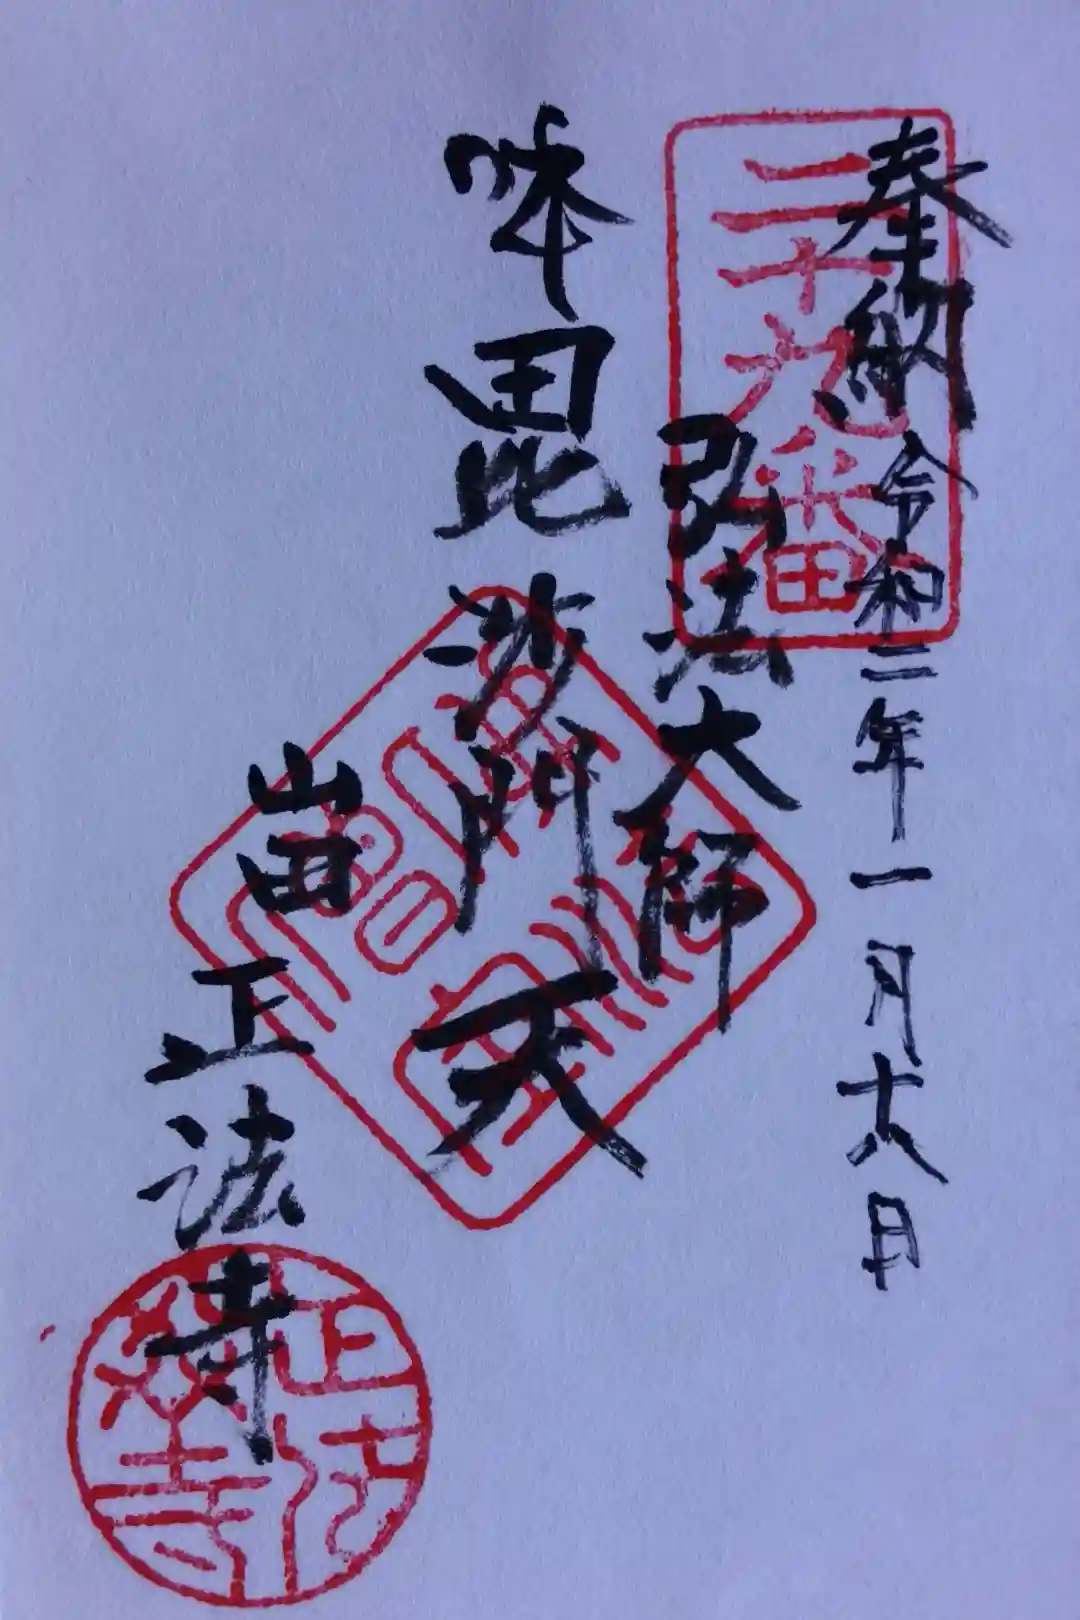 奉納 令和二年一月十八日
二十九番
弘法大師
毘沙門天
山田 正法寺